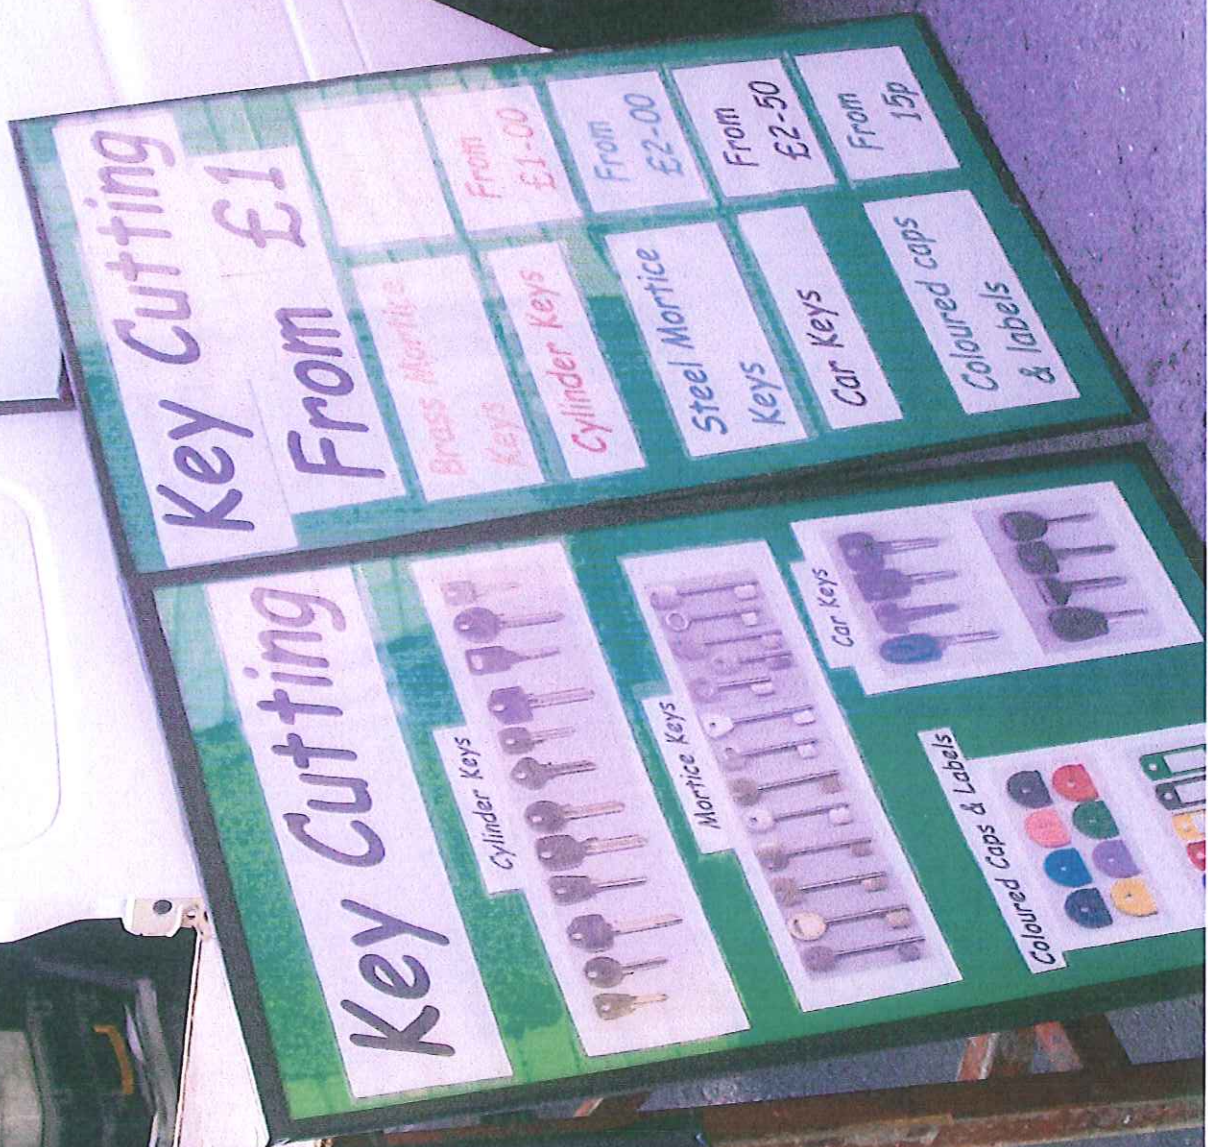 Key Cutting
Cylinder Keys
Mortice Keys
Car Keys
Coloured Caps & Labels
Key Cutting
From £1
Brass Mortice
Keys
Cylinder Keys
From
£1-00
Steel Mortice
Keys
From
£2-00
Car Keys
From
£2-50
Coloured caps
& labels
From
15p